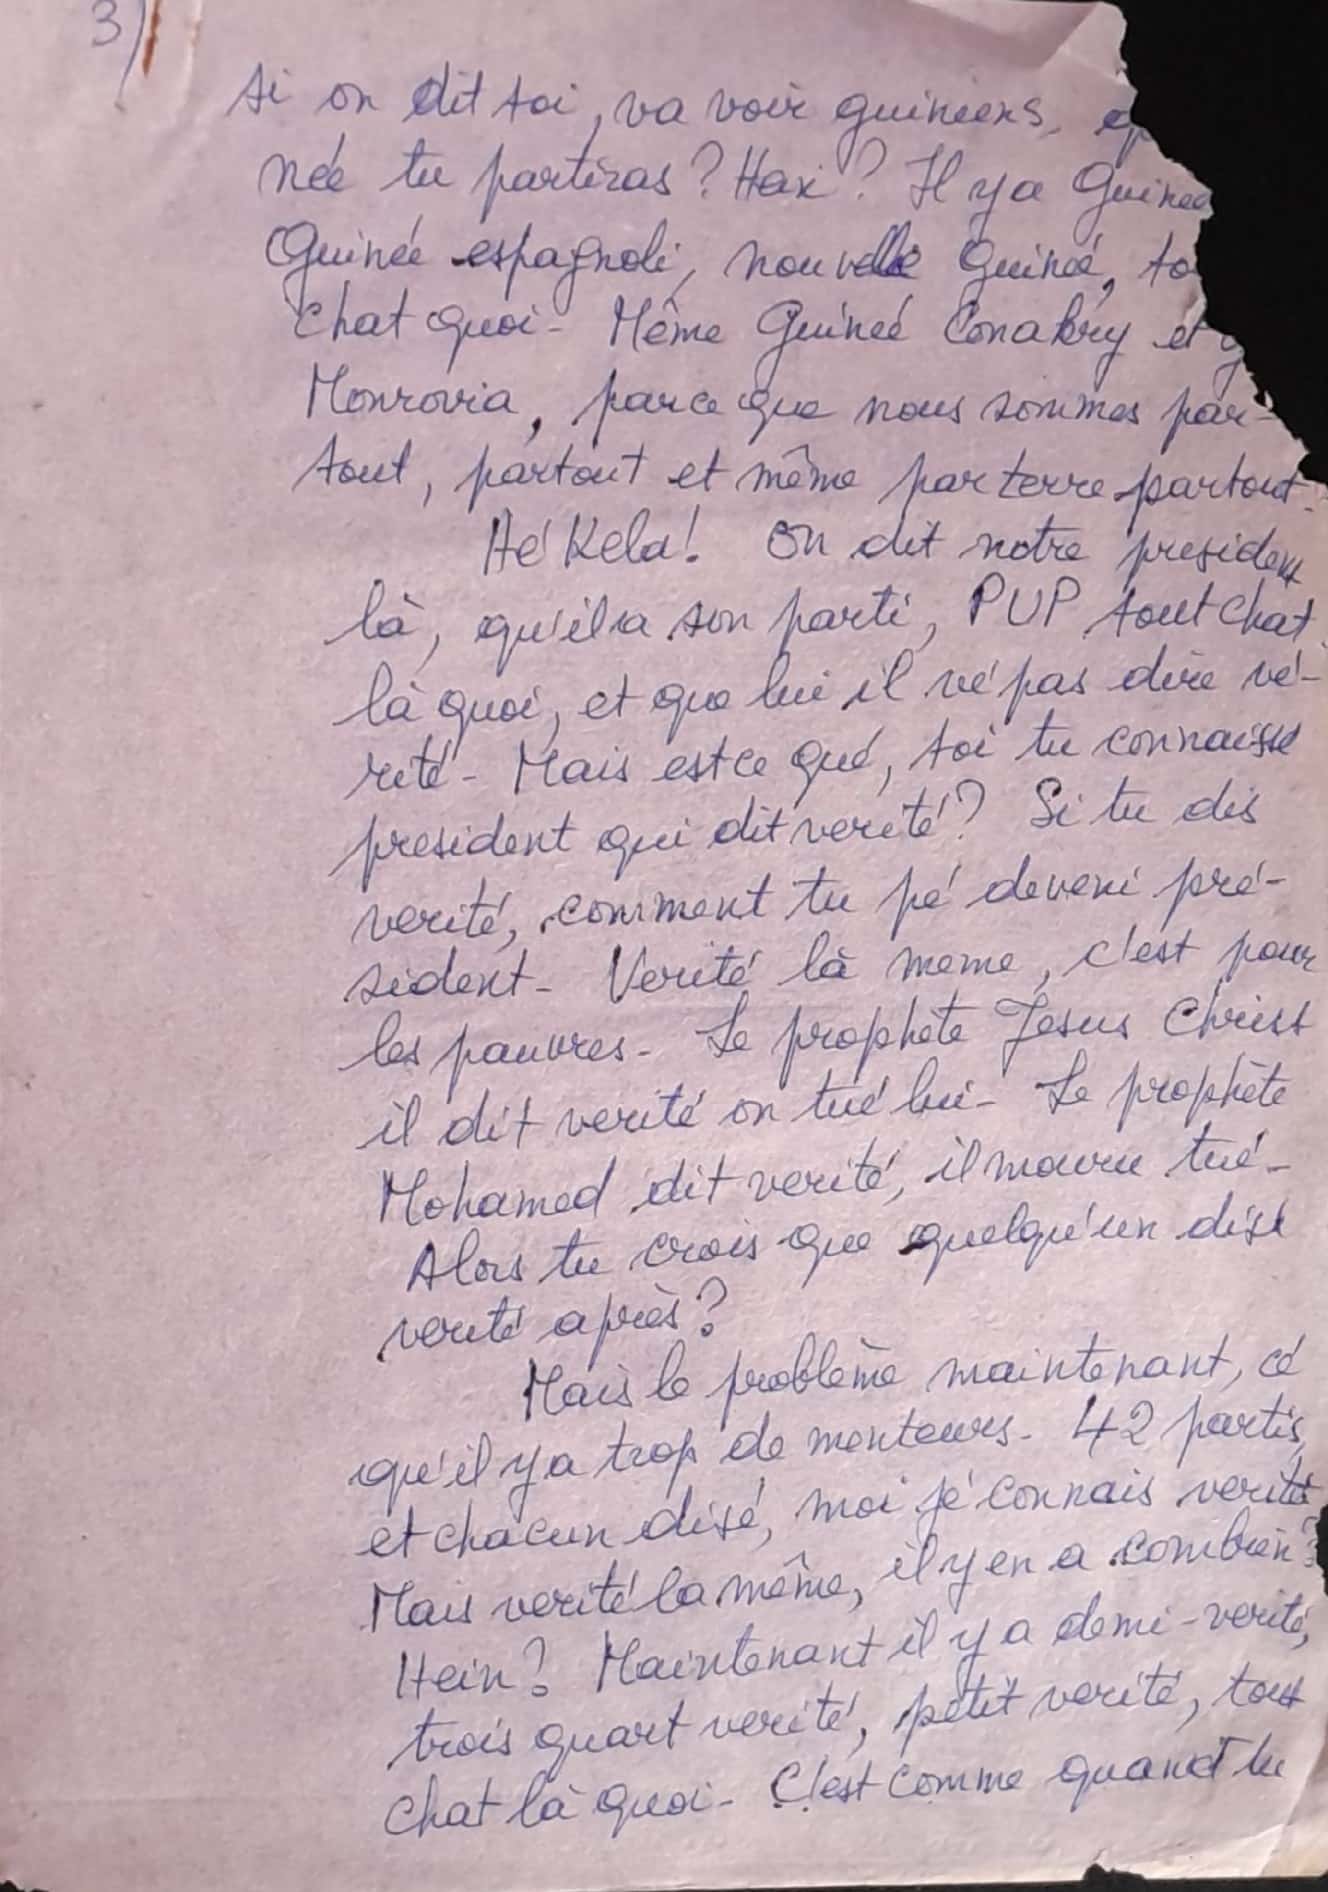 3)
si on dit toi, va voir guineens,
née tu partiras? Hax? Il ya Guinée
Guinée espagnole, nouvelle Guinée, to
chat quoi- Même Guinée Conakry et g
Monrovia, parce que nous sommes par-
tout, partout et même par terre partout.
Hé Kela! On dit notre president
là, qu'il a son parti, PUP tout chat
là quoi, et que lui il vé pas dire vé-
rité- Mais est ce qué, toi tu connaisse
president qui dit verité? Si tu dis
verité, comment tu pé deveni pré-
sident- Verité là meme, c'est pour
les pauvres- Le prophète Jesus Christ
il dit verité on tué lui- Le prophète
Mohamed dit verité, il mouru tué-
Alors tu crois que quelqu'un disé
verité après?
Mais le problème maintenant, cé
qu'il ya trop de menteurs- 42 partis,
et chacun disé, moi jé connais verité
Mais verité la même, il y en a combien?
Hein? Maintenant il y a demi-verité,
trois quart verité, petit verité, tout
chat là quoi- C'est comme quand tu